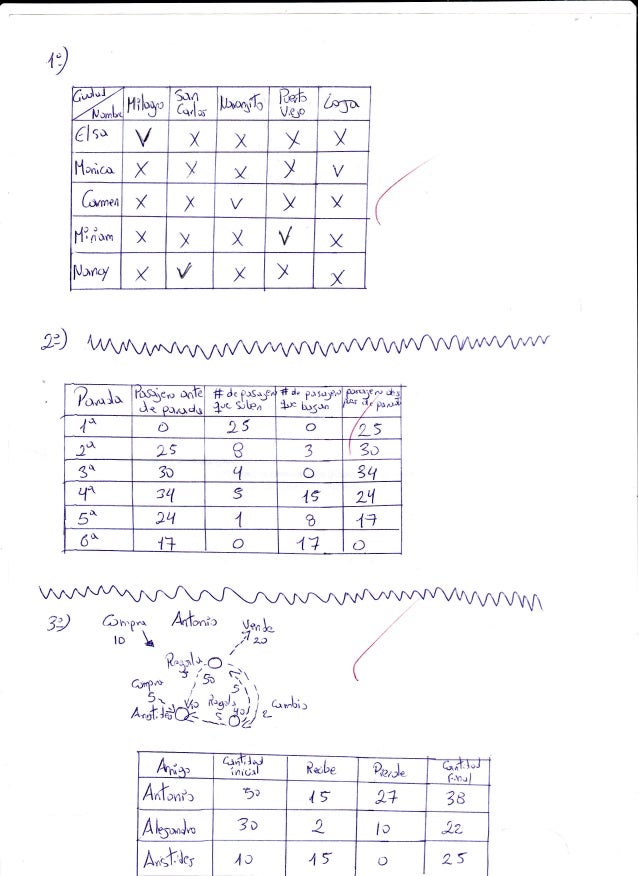 1º)
Ciudad Nombre Milagro San Carlos Naranjito Puerto Viejo Loja
Elsa V X X X X
Monica X X X X V
Carmen X X V X X
Miriam X X X V X
Nancy X V X X X
2º)
Parada Pasajero ante de parada # de pasajero que suben # de pasajero que bajan pasajero des pues de parada
1ª 0 25 0 25
2ª 25 8 3 30
3ª 30 4 0 34
4ª 34 5 15 24
5ª 24 1 8 17
6ª 17 0 17 0
3º) Compra 10 Antonio Vende 20
Regala 5 50
Compra 5 Regala 5 5 Cambio 2
Aristides
Amigo Cantidad inicial Recibe Pierde Cantidad final
Antonio 50 15 27 38
Alejandro 30 2 10 22
Aristides 10 15 0 25